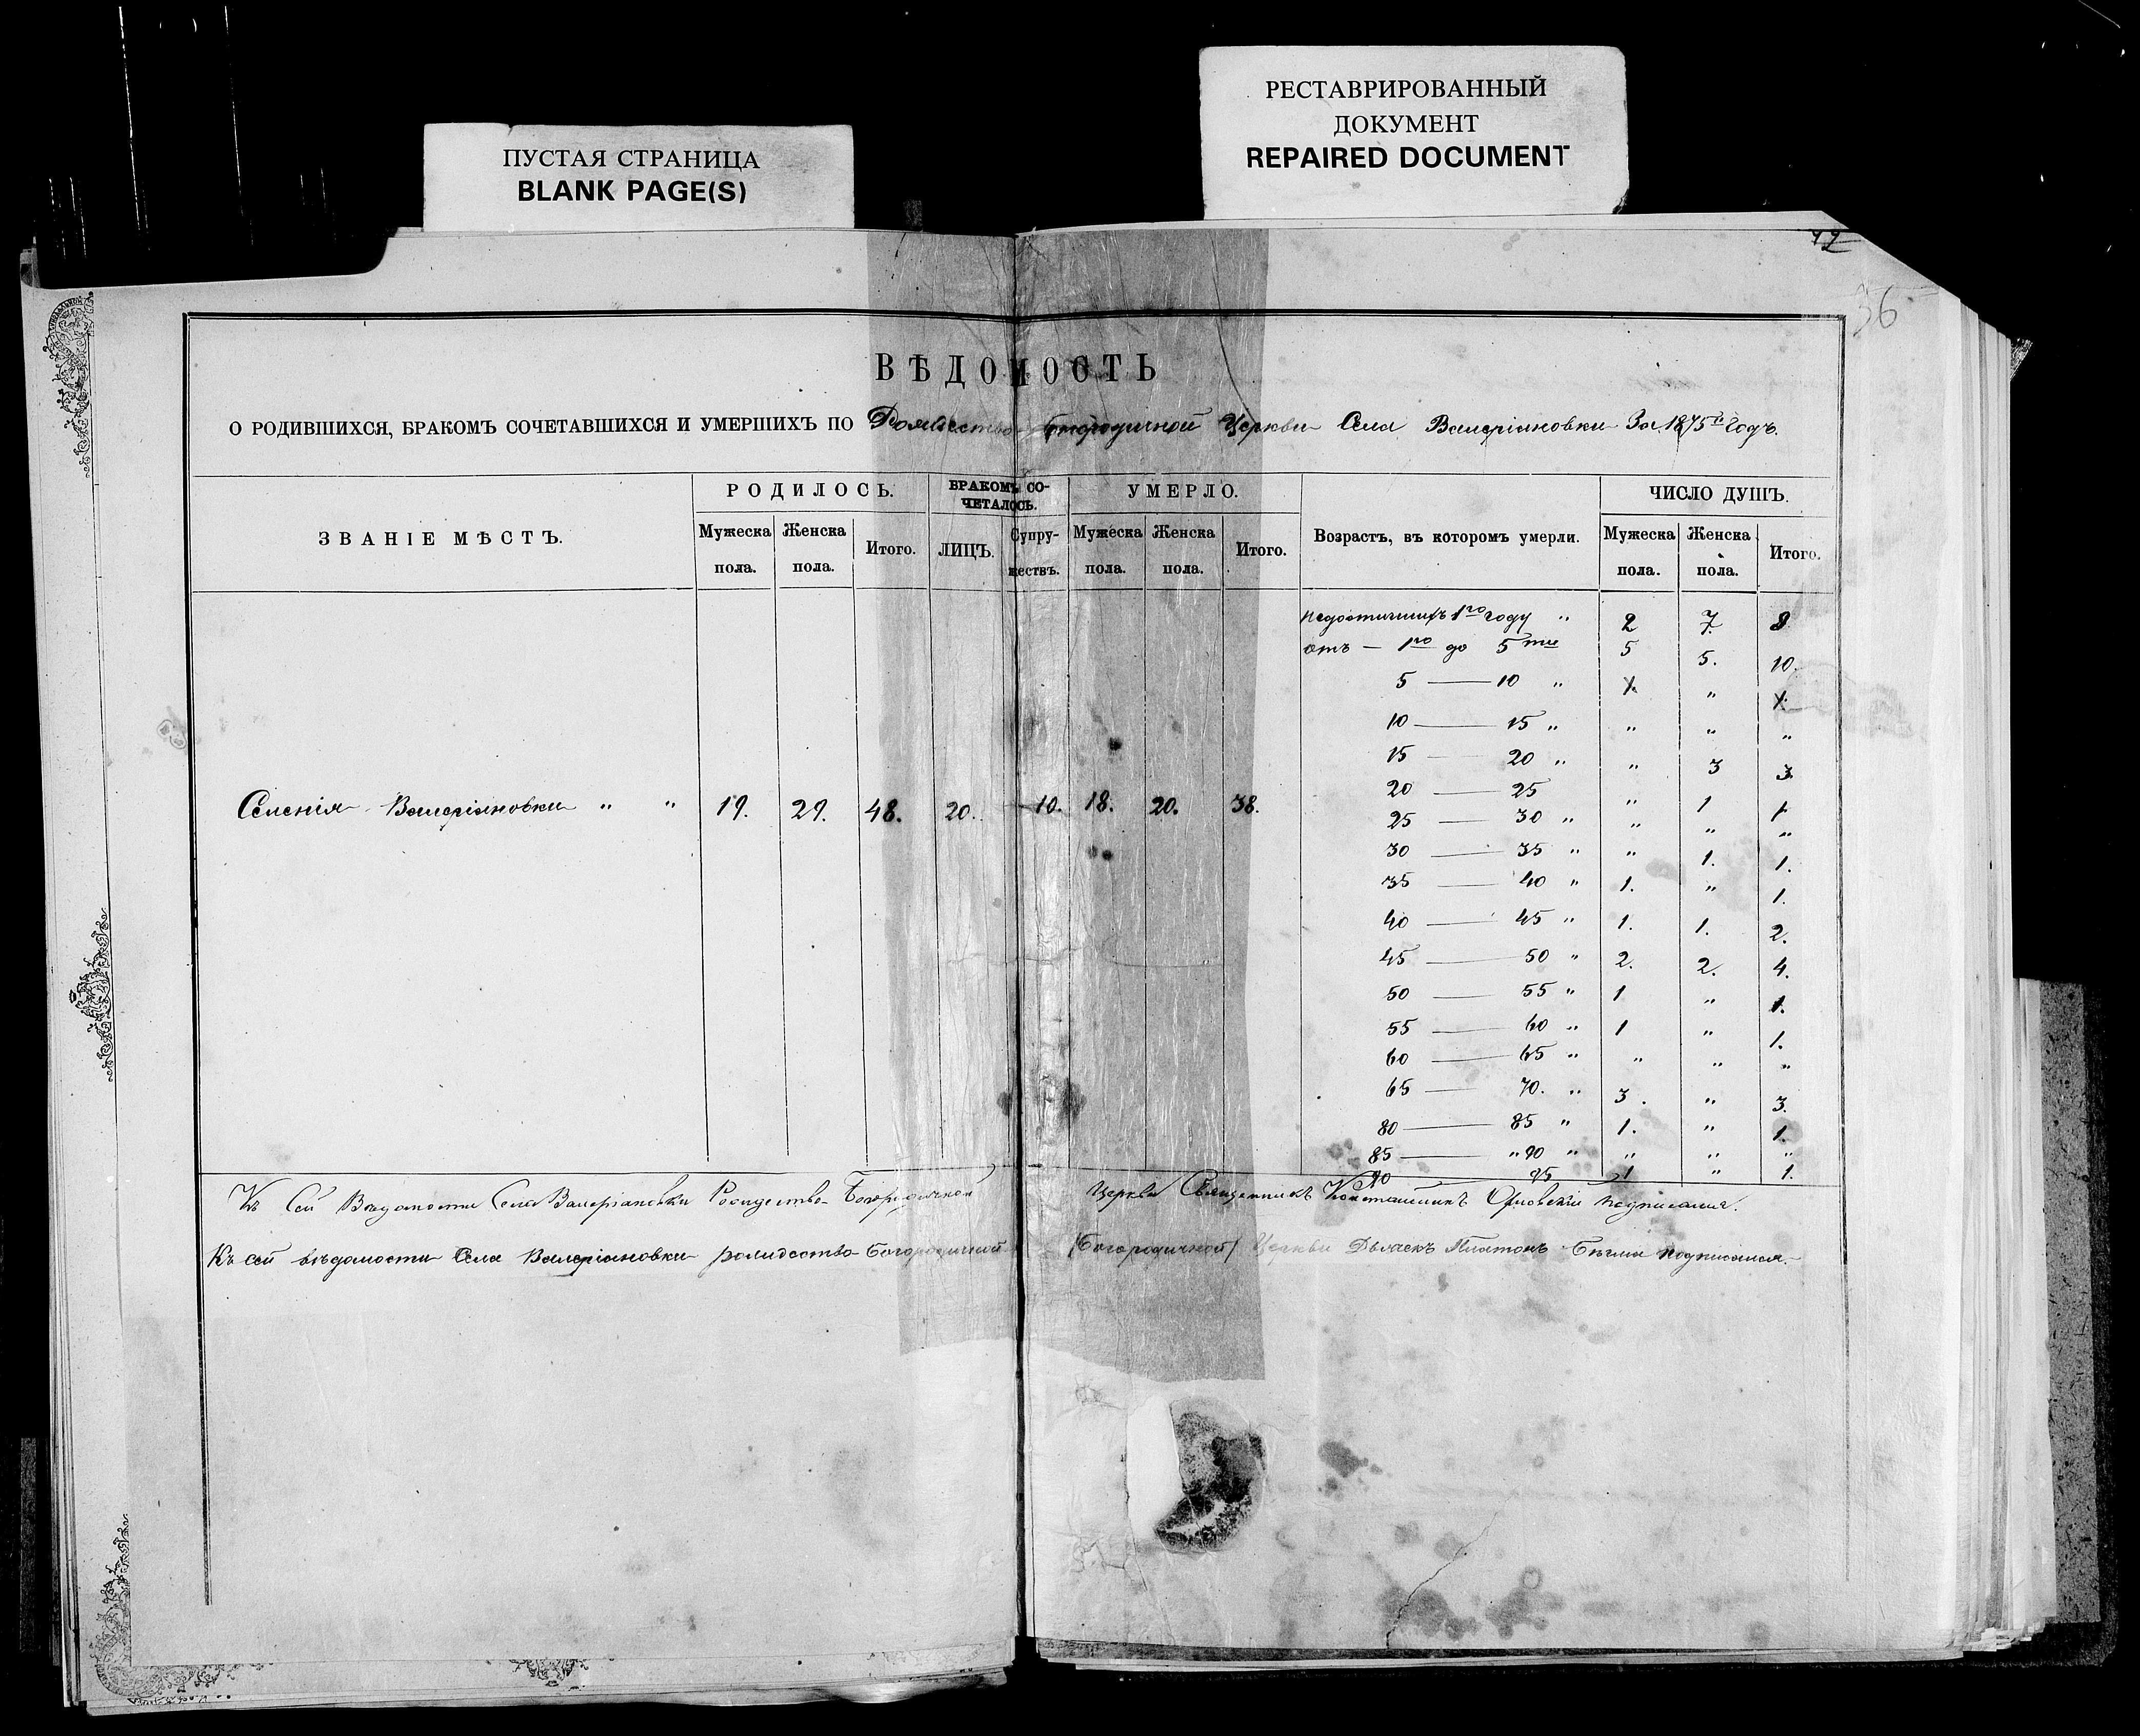 ПУСТАЯ СТРАНИЦА
BLANK PAGE(S)
РЕСТАВРИРОВАННЫЙ
ДОКУМЕНТ
REPAIRED DOCUMENT
42
36
ВѢДОМОСТЬ
О РОДИВШИХСЯ, БРАКОМЪ СОЧЕТАВШИХСЯ И УМЕРШИХЪ ПО Рождество-Богородичной Церкви Села Валеріановки За 1875й Годъ.
ЗВАНІЕ МѢСТЪ. РОДИЛОСЬ. БРАКОМЪ СОЧЕТАЛОСЬ. УМЕРЛО. Возрастъ, въ которомъ умерли. ЧИСЛО ДУШЪ.
Мужеска пола. Женска пола. Итого. ЛИЦЪ. Супружествъ. Мужеска пола. Женска пола. Итого. Мужеска пола. Женска пола. Итого.
недостигшихъ 1го году " 2 7. 8
отъ — 1го до 5ти 5 5. 10.
5 — 10 " 1. " 1.
10 — 15 " " " "
15 — 20 " " 3 3
20 — 25 " 1 1
Селенія Валеріановки " " 19. 29. 48. 20. 10. 18. 20. 38.
25 — 30 " " " "
30 — 35 " " 1. 1.
35 — 40 " 1. " 1.
40 — 45 " 1. 1. 2.
45 — 50 " 2. 2. 4.
50 — 55 " 1 " 1.
55 — 60 " 1 " 1.
60 — 65 " " " "
65 — 70. " 3. " 3.
80 — 85 " 1. " 1.
85 — " 90 " " " "
90 — 95 1 " 1.
Къ Сей Вѣдомости Села Валеріановки Рождество-Богородичной Церкви Священникъ Константинъ Орловскій подписался.
Къ сей вѣдомости Села Валеріановки рождество-Богородичной (Богородичной) Церкви Дьячекъ Платонъ подписался.